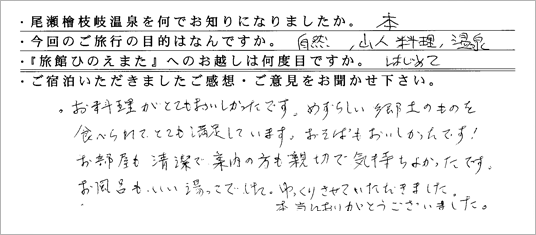 ・尾瀬檜枝岐温泉を何でお知りになりましたか。 本
・今回のご旅行の目的はなんですか。 自然、山人料理、温泉
・『旅館ひのえまた』へのお越しは何度目ですか。 はじめて
・ご宿泊いただきましたご感想・ご意見をお聞かせ下さい。
・お料理がとてもおいしかったです。めずらしい郷土のものを
食べられてとても満足しています。おそばもおいしかったです!
お部屋も清潔で案内の方も親切で気持ちよかったです。
お風呂もいい湯っこでした。ゆっくりさせていただきました。
本当にありがとうございました。